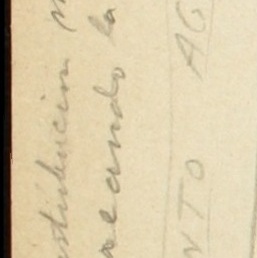 stitución
reando la
NTO AG